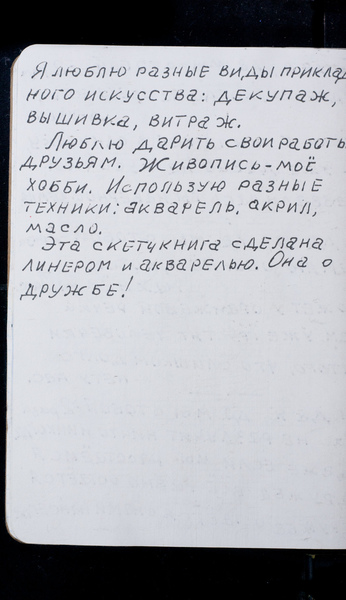 Я люблю разные виды приклад
ного искусства: декупаж,
вышивка, витраж.
Люблю дарить свои работы
друзьям. Живопись-моё
хобби. Использую разные
техники: акварель, акрил,
масло.
Эта скетчкнига сделана
линером и акварелью. Она о
дружбе!